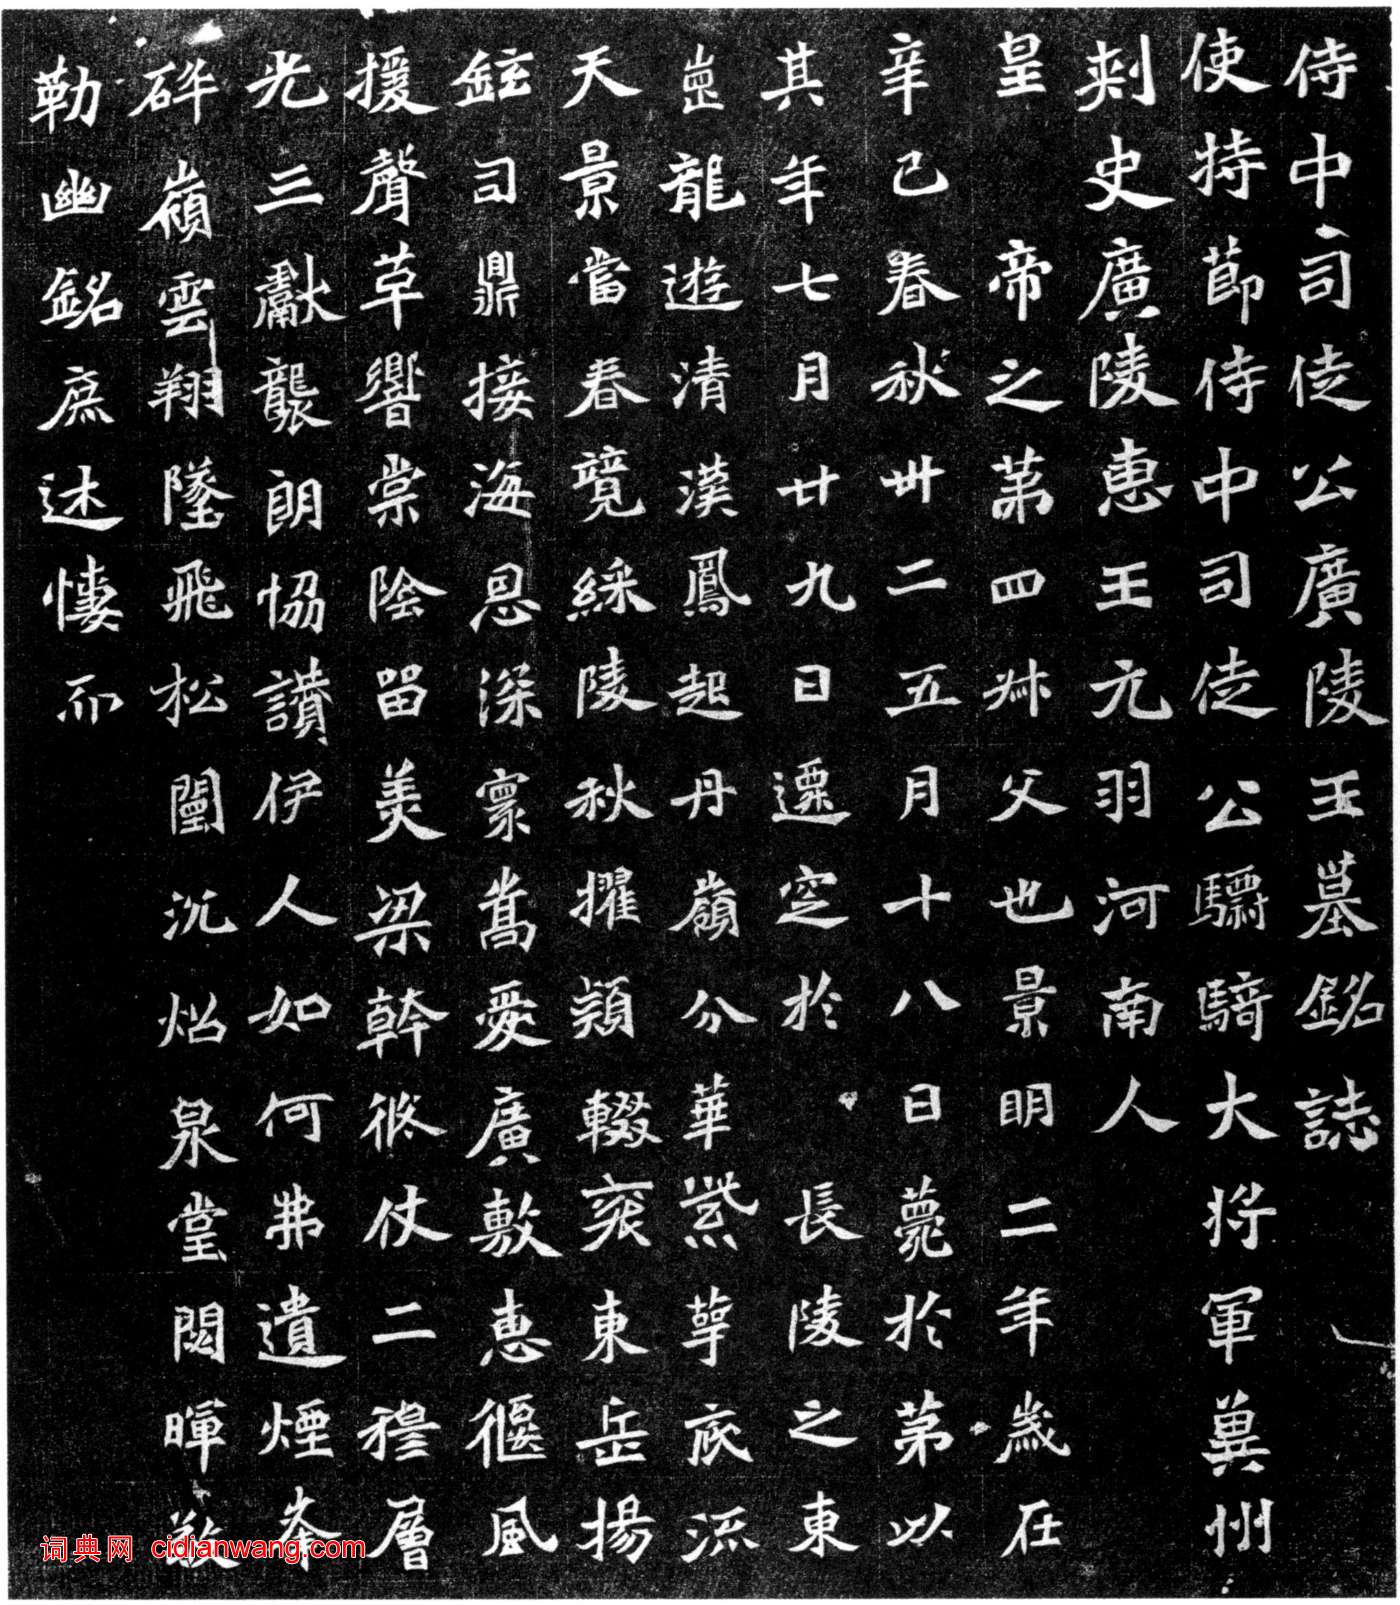 侍中司徒公廣陵王墓銘誌
使持節侍中司徒公驃騎大將軍冀州
刺史廣陵惠王元羽河南人
皇帝之第四叔父也景明二年歲在
辛巳春秋卅二五月十八日薨於第以
其年七月廿九日遷窆於長陵之東
崗龍遊清漢鳳起丹嶺分華紫萼底流
天景當春競綵陵秋擢穎輟衮東岳揚
鉉司鼎接海思深寰嵩愛廣敷惠偃風
援聲草響棠陰留美梁幹俗仗二穆層
光三獻襲朗協讃伊人如何弗遺煙峯
碎嶺雲翔墜飛松闈沉炤泉堂閟暉敬
勒幽銘庶述悽而
词典网 cidianwang.com